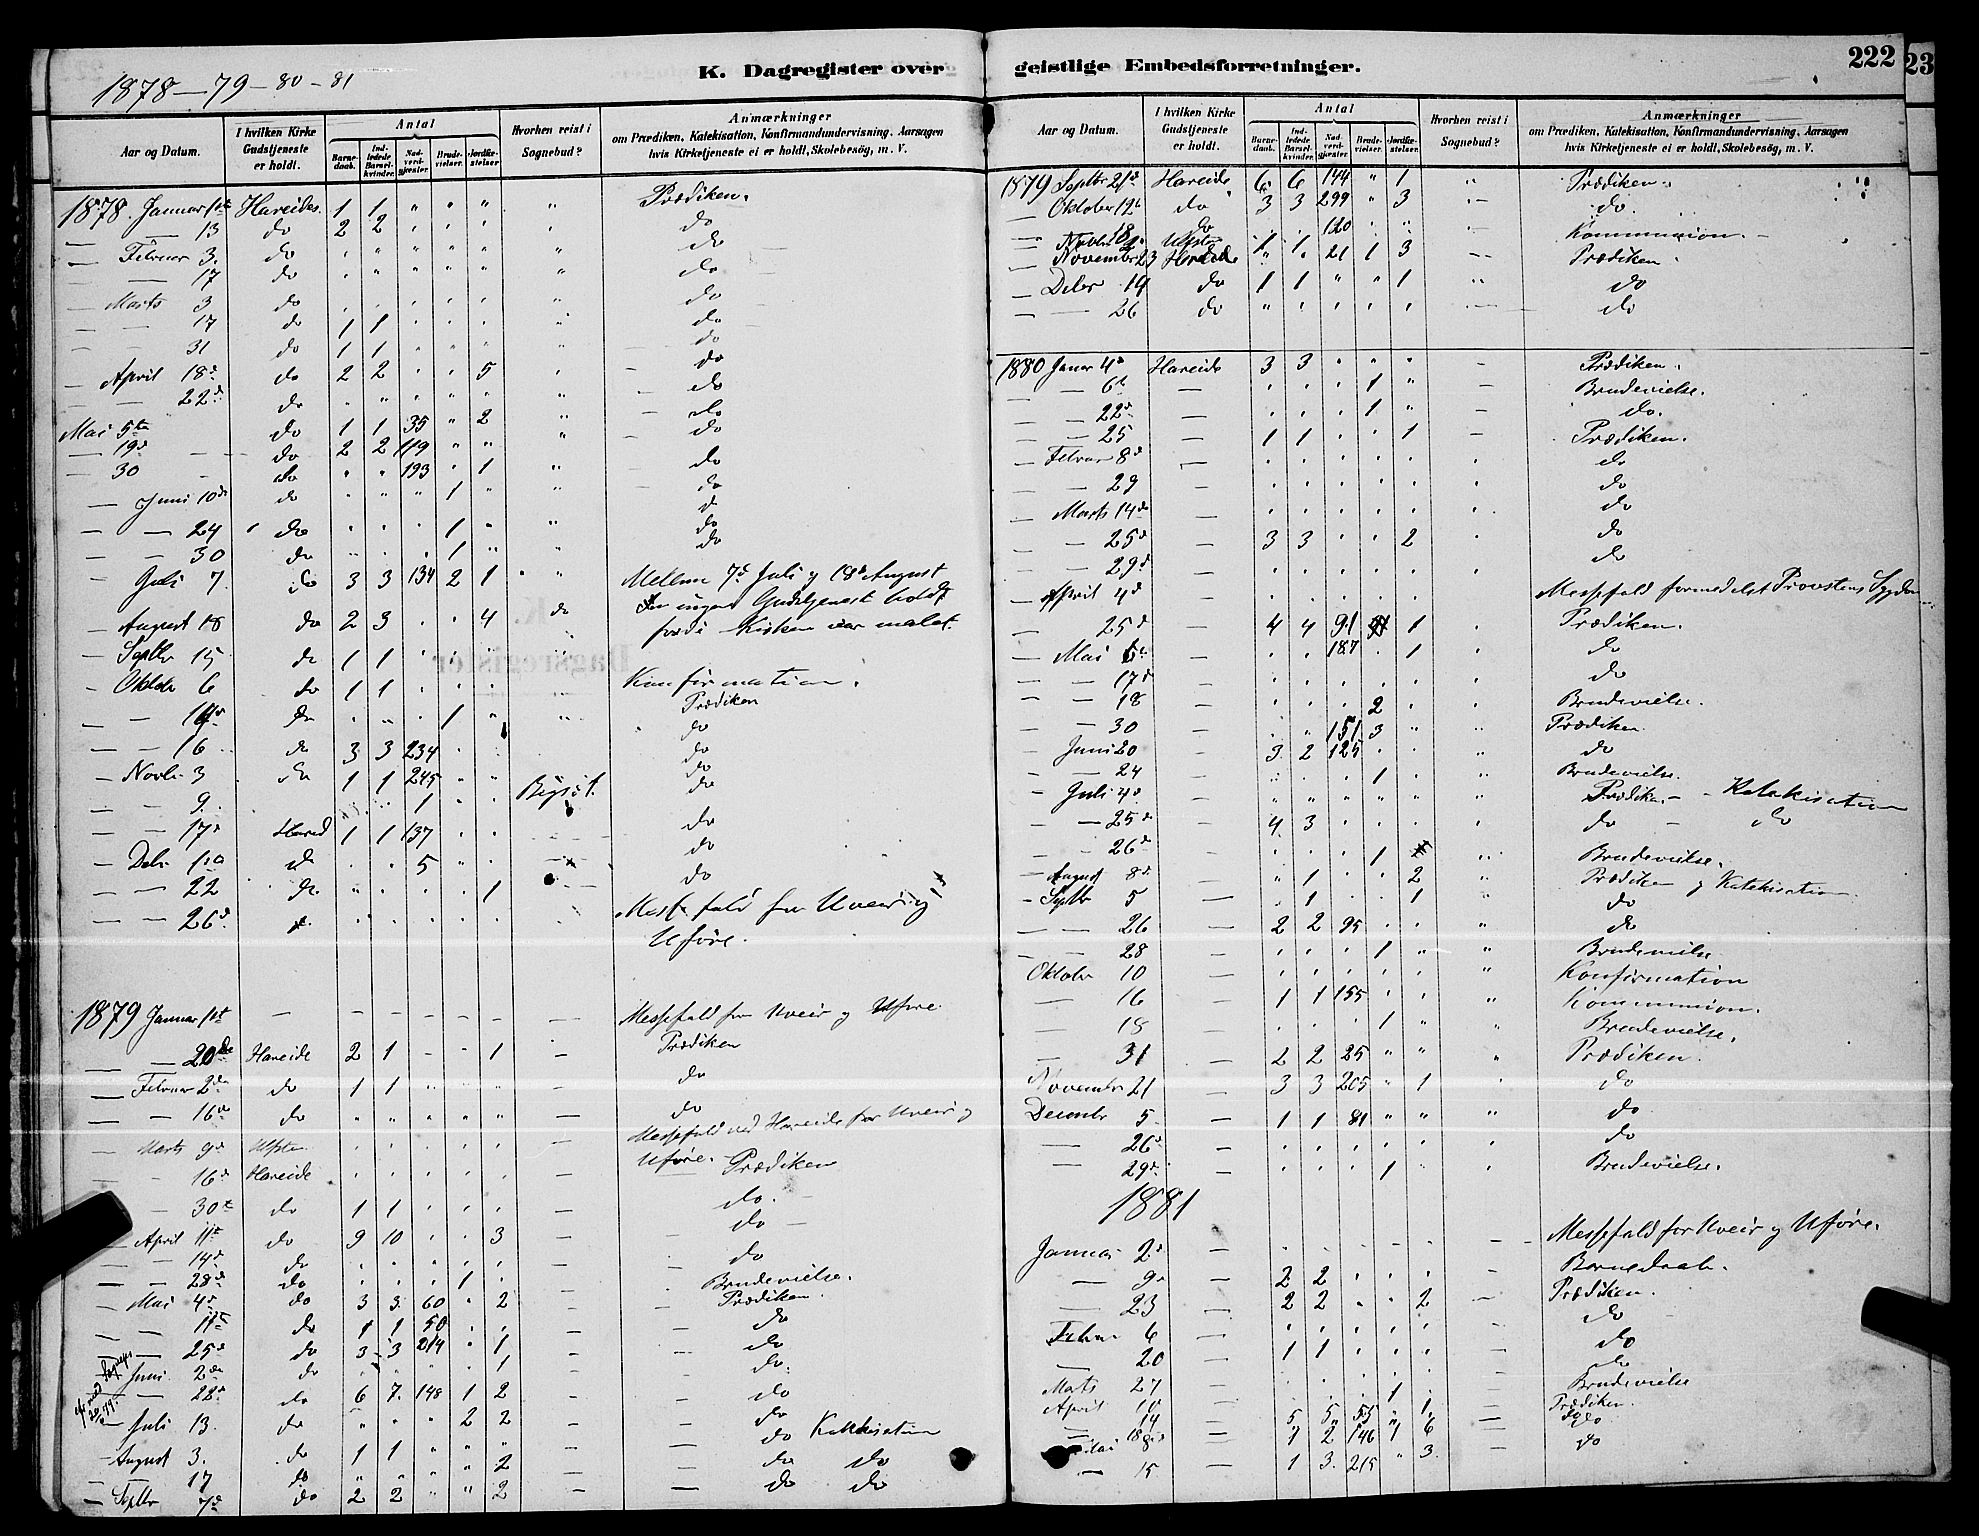 1878-79-80-81
K. Dagregister over
Aar og Datum. I hvilken Kirke Gudstjeneste er holdt. Antal Barnedaab. Indledede Barselkvinder. Nadverdgjester. Brudevielser. Jordfæstelser. Hvorhen reist i Sognebud? Anmærkninger om Prædiken, Katekisation, Konfirmandundervisning, Aarsagen hvis Kirketjeneste ei er holdt, Skolebesög, m. V.
1878. Januar 1st Hareides 1 1 " " " " Prædiken.
— 13 do 2 2 " " " " do
— Februar 3. do " " " " " " do
— 17 do " " " " " " do
— Marts 3 do " " " " " " do
— — 17 do 1 1 " " " " do
— 31 do 1 1 " " " " do
— April 18d do 2 2 " " 5 " do
— — 22d do " " " " " " do
Mai 5te do 1 1 35 " 2 " do
— 19d do 2 2 119 " " " do
— 30 do " " 193 " 1 " do
— Juni 10de do " " " 1 " " do
— — 24 do " " " 1 " " do
— — 30 do " " " 1 " " do
— Juli 7. do 3 3 134 2 1 " Mellem 7d Juli og 18d August
er ingen Gudstjenest holdt
— August 18 do 2 3 " " 4 do fordi Kirken var malet.
— Septbr 15 do 1 1 " " " "
— Oktobr 6 do 1 1 " " " " Konfirmation.
Prædiken
— — do " " " 1 " " do
— — 16 do 3 3 234 " " do
— Novbr 3 do 1 1 245 " " do
— — 9. 1 " " Bigset. do
— — 17d Hareid 1 1 137 " " do
— Debr 1 do " " 5 " " do
— — 22 do " " " " 1 do
— — 26d " " " " " Messefald for Uveir og
Uføre.
1879 Januar 1st — — — — — — — Messefald for Uveir og Uføre
— 20de Hareide 2 1 - - 1 — Prædiken
— Februar 2de do 1 1 " " " — do
— — 16de do " " " " " — do
— Marts 9d Ulfsten " " " " " — Messefald ved Hareide for Uveir og
Uføre. Prædiken
— 16d Hareide " " " " " —
— 30te do 1 1 " " " — do.
— April 11te do 9 10 " " 3 — do
— 14d do " " " " " — do
— — 28d do " " " 1 " — Brudevielse.
— Mai 4d do 3 3 60 " 2 — Prædiken.
— — 11te do 1 1 50 " " — do
— — 25d do 3 3 214 " 1 — do
— Juni 2de do " " " " 1 — do.
— — 22d do 6 7 148 1 2 — do
— Juli 13. do " " " 2 2 — do
do Katekisation
— August 3. do 1 1 " " " — do do
— — 17 do " " " " 2
— Septbr 7d do 2 2 " " 2 — do do
geistlige Embedsforretninger.
222
23
Aar og Datum. I hvilken Kirke Gudstjeneste er holdt. Antal Barnedaab. Indledede Barselkvinder. Nadverdgjester. Brudevielser. Jordfæstelser. Hvorhen reist i Sognebud? Anmærkninger om Prædiken, Katekisation, Konfirmandundervisning, Aarsagen hvis Kirketjeneste ei er holdt, Skolebesög, m. V.
1879 Septbr 21d Hareide 6 6 144 " 1 " Prædiken.
— Oktober 12te do 3 3 299 " 3 — do.
— 18 do 120 Kommunion.
— Novbr 2 Ulfsten 1 1
— November 23 Hareide " " 21 1 3 — Prædiken.
— Debr 14 do 1 1 " " 1 " do
— — 26 do " " " " " " do
1880 Januar 4d Hareide 3 3 " " " — Prædiken.
— 6d — " " " 1 " — Brudevielse.
— 22d — " " " 1 " — do.
— — 25 — 1 1 " " 1 — Prædiken.
— Februar 8d — " " " " " do
— — 29 — " " " " " do
— Marts 14de — " " " " " do
— — 25d — 3 3 " " 2 do
— — 29d — " " " " " do
— April 4d — " " " " " Messefald formedelst Provstens Sygdom
— 25d — 4 4 91 1 Prædiken.
— Mai 6te — " " 187 " 1 do
— — 17d — " " " " " do
— — 18 — " " " 2 " Brudevielse.
— 30 — " " 151 3 " Prædiken
— Juni 20 — 3 2 125 " " do
— — 24 — " " " 1 " Brudevielse.
— Juli 4d — " " " " " Prædiken - Katekisation
— — 25d — 4 3 " " " do — do
— — 26d — " " " 1 Brudevielse.
— August 8d — " 1 " " 2 Prædiken og Katekisation
— Septbr 5 — " 1 " " 1 do
— — 26 — 2 2 95 " " do
— — 28 — " " " 1 " Brudevielse
Oktober 10 — " " " " " Konfirmation
— 16 — 1 1 155 " " Kommunion.
— 18 — " " " 1 " Brudevielse.
— 31 — 2 2 25 " " Prædiken.
November 21 — 3 3 205 " 1 do
Decembr 5. — 1 1 81 " " do
— 26d — " " " " " do
— 29d — " " " 1 " Brudevielse.
1881
Januar 2d — " - - - - — Messefald for Uveir og Uføre.
— 9d — 2 2 " " " — Barnedaab.
— 23 — 2 2 " " 2 — Prædiken.
Februar 6 — " " " " " do
— 20 — 1 1 " " " do
Marts 27 — " " " " " do
April — " " " 1 " — Brudevielse
— 14 — 5 5 55 " 1 — Prædiken.
— 18 — 1 2 146 1 6 — do
Mai
— 15 — 1 3 215 " 3. — do